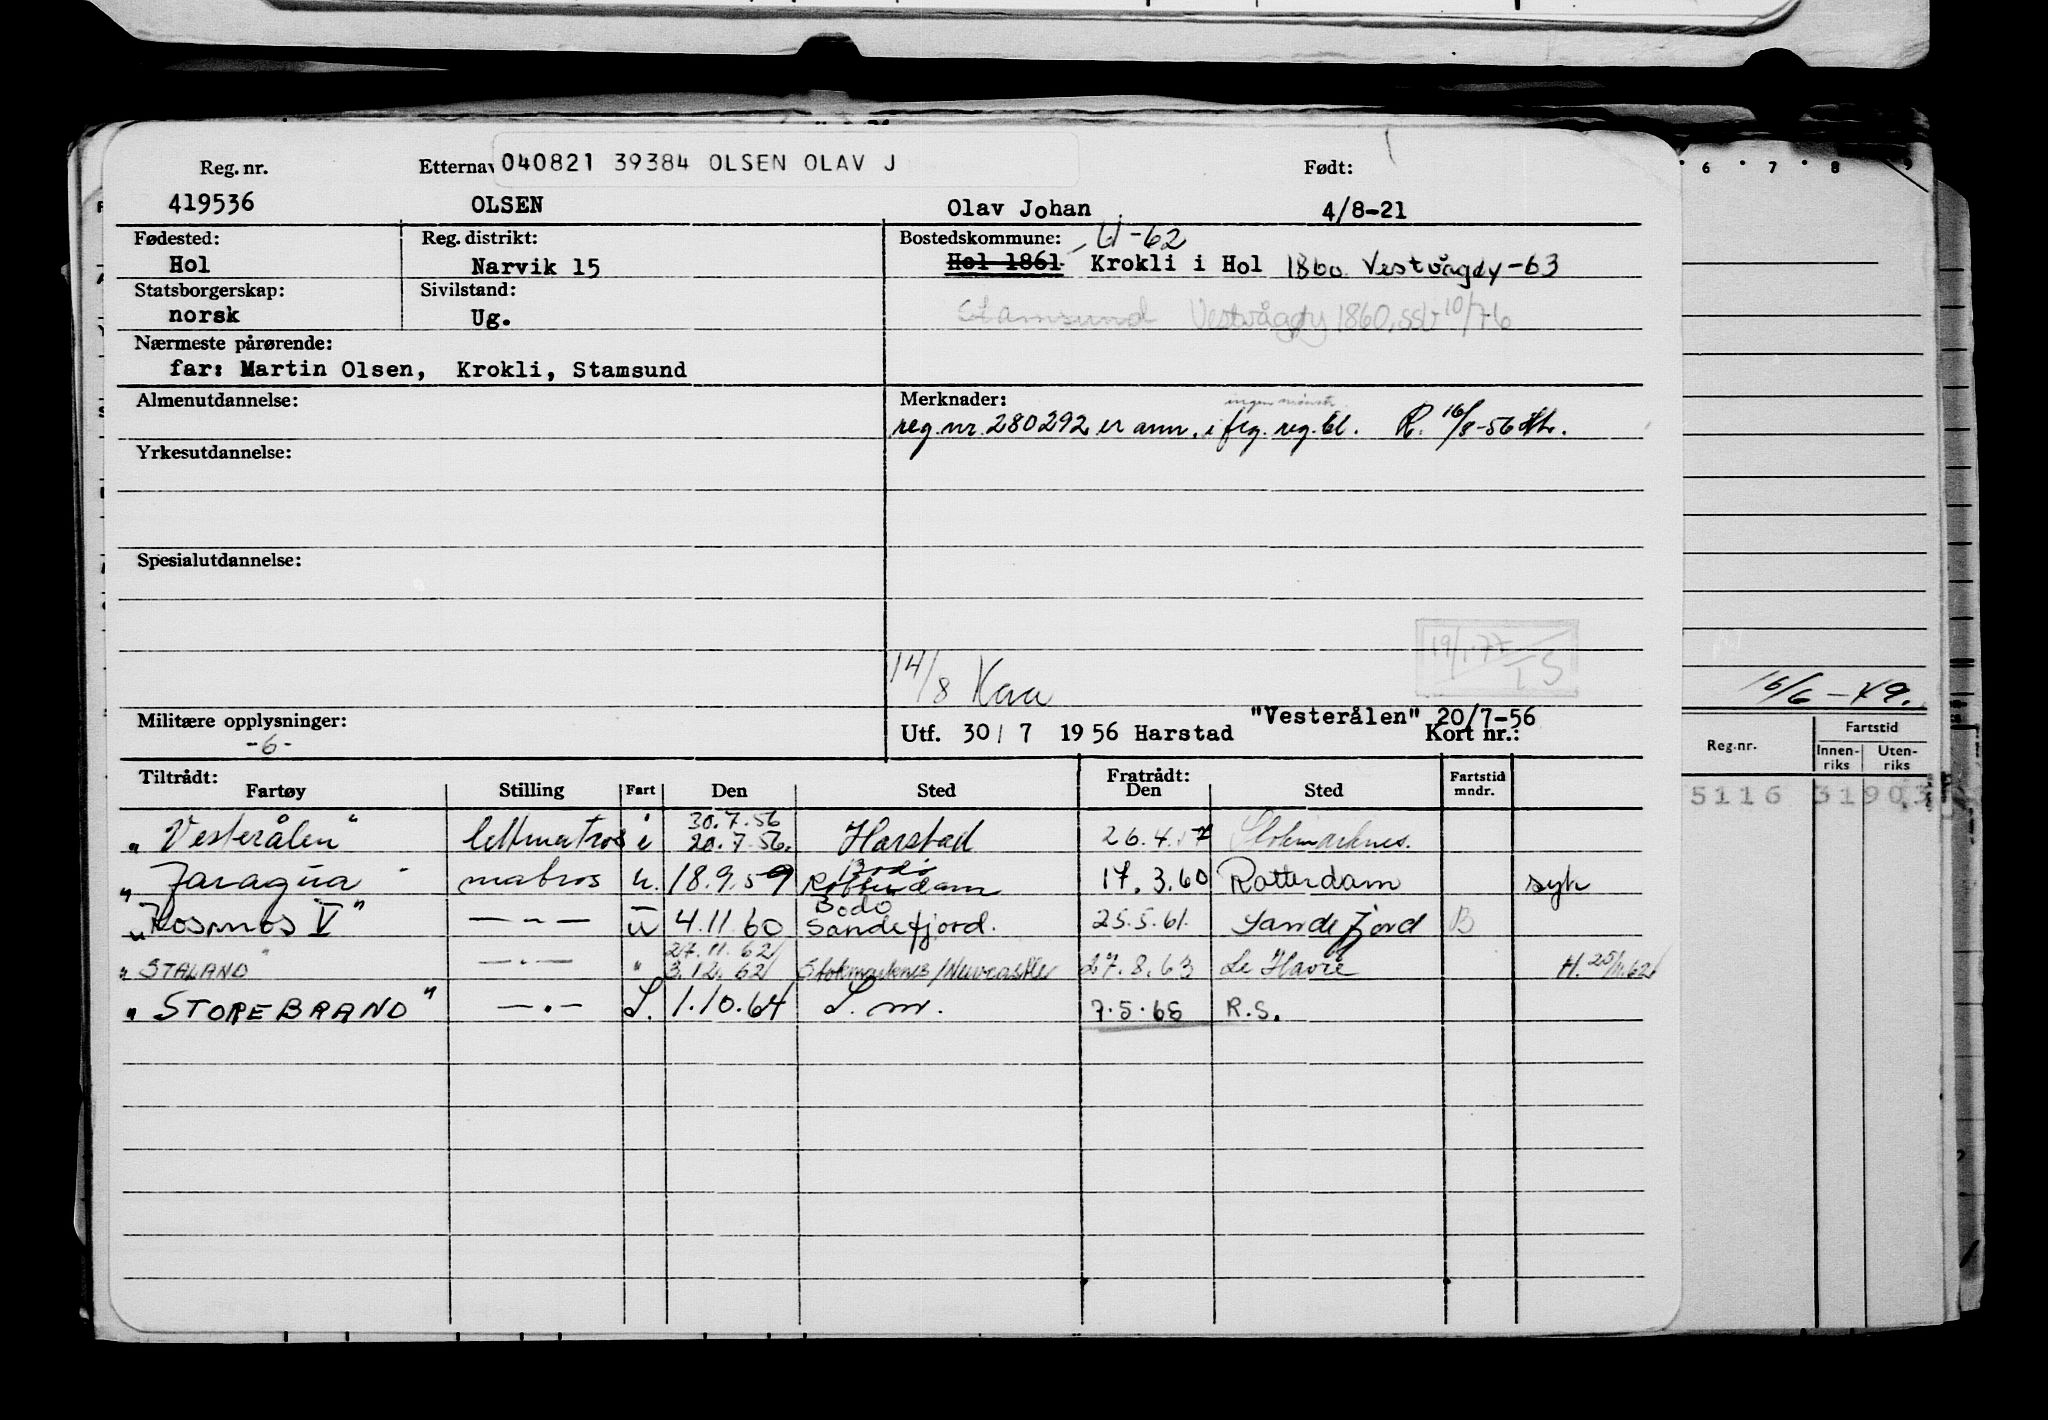 Reg. nr. Etternav 040821 39384 OLSEN OLAV J Født:
419536 OLSEN Olav Johan 4/8-21
Fødested: Reg. distrikt: Bostedskommune: U-62
Hol Narvik 15 Hol 1861 Krokli i Hol 1860 Vestvågøy-63
Statsborgerskap: Sivilstand:
norsk Ug. Stamsund Vestvågøy 1860, ssv 10/76
Nærmeste pårørende:
far: Martin Olsen, Krokli, Stamsund
Almenutdannelse: Merknader: ingen mønstr.
reg. nr. 280292 er ann. i flg. reg. bl. R. 16/8-56
Yrkesutdannelse:
Spesialutdannelse:
19/1-77
14/8
Militære opplysninger: "Vesterålen" 20/7-56
-6- Utf. 30/7 1956 Harstad Kort nr.:
Tiltrådt: Fratrådt: Fartstid
Fartøy Stilling Fart Den Sted Den Sted mndr.
30.7.56
"Vesterålen" lettmatros i 20.7.56. Harstad 26.4.57 Stokmarknes.
Bodø
"Jaragua" matros u. 18.9.59 Rotterdam 17.3.60 Rotterdam syk
Bodø
"Kosmos V" — " — u 4.11.60 Sandefjord. 25.5.61. Sandefjord B
27.11.62
"STALAND" — " — " 3.12.62 Stokmarknes/Newcastle 27.8.63 Le Havre H. 25/11.62
"STOREBRAND" — " — S. 1.10.64 S. m. 7.5.65 R.S.
6 7 8 9
16/6-49.
Reg.nr. Fartstid
Innen- Uten-
riks riks
5116 31903